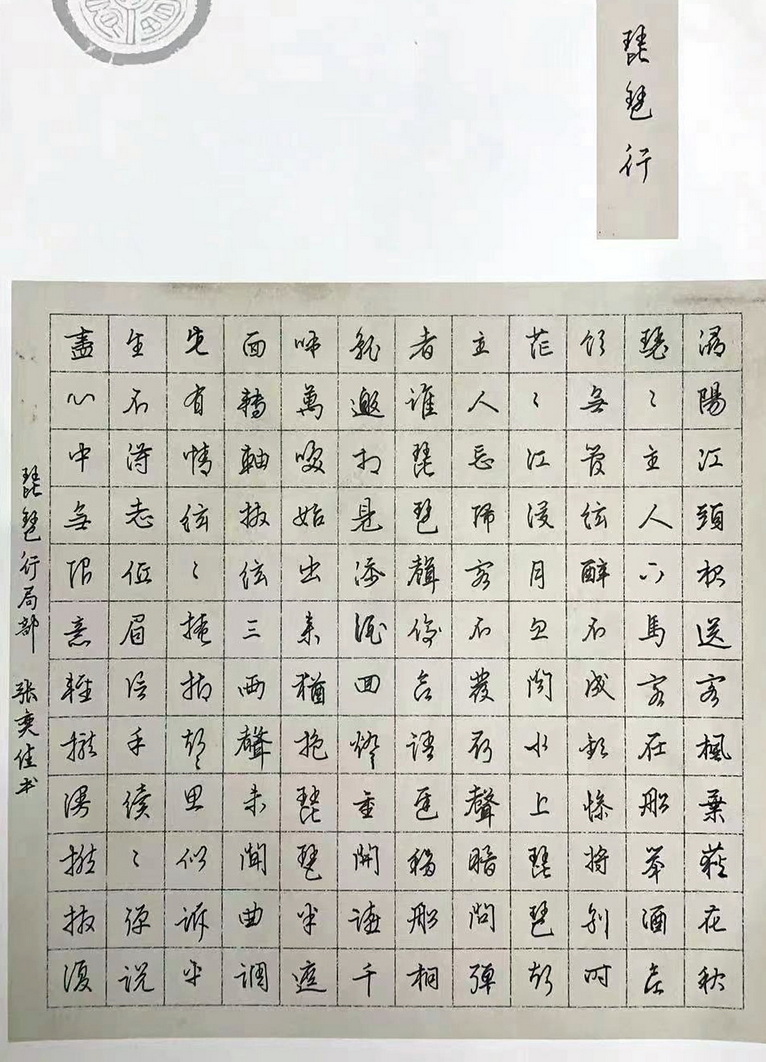 琵琶行
潯陽江頭夜送客楓葉荻花秋
瑟〻主人下馬客在船舉酒欲
飲無管絃醉不成歡慘將別時
茫〻江浸月忽聞水上琵琶声
主人忘歸客不發尋聲暗問彈
者誰琵琶聲停欲語遲移船相
就邀相見添酒回燈重開宴千
呼萬喚始出来猶抱琵琶半遮
面轉軸撥絃三兩聲未聞曲調
先有情絃〻掩抑声〻思似訴平
生不得志低眉信手續〻彈說
盡心中無限意輕攏慢撚撥復
琵琶行局部 张奕佳书